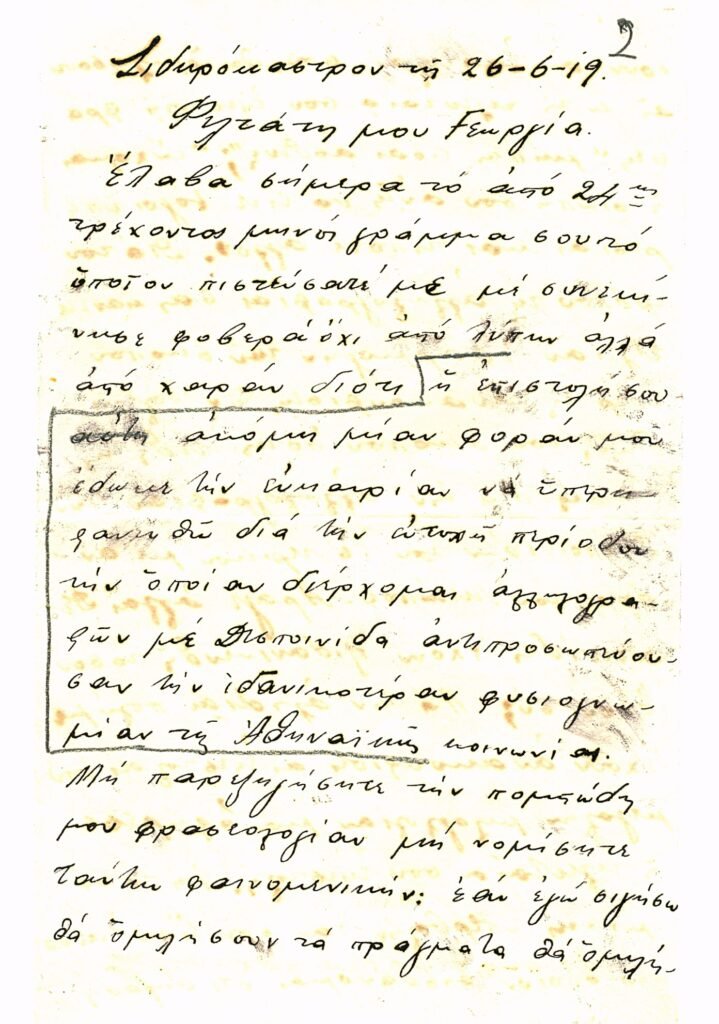 2
Σιδηρόκαστρον τῇ 26-6-19.
Φιλτάτη μου Γεωργία.
Ἔλαβα σήμερα τό ἀπό 24ης
τρέχοντος μηνός γράμμα σου τό
ὁποῖον πιστεύσατέ με μέ συνεκί-
νησε φοβερά ὄχι ἀπό λύπην ἀλλά
ἀπό χαράν διότι ἡ ἐπιστολή σου
αὐτή ἀκόμη μίαν φοράν μου
ἔδωσε τήν εὐκαιρίαν νά ὑπερη
φανευθῶ διά τήν εὐτυχῆ περίοδον
τήν ὁποίαν διέρχομαι ἀλληλογρα-
φῶν μέ Δεσποινίδα ἀντιπροσωπεύου-
σαν τήν ἰδανικοτέραν φυσιογνω-
μίαν τῆς Ἀθηναϊκῆς κοινωνίας.
Μή παρεξηγήσητε τήν πομπώδη
μου φρασεολογίαν μή νομίσητε
ταύτην φαινομενικήν: ἐάν ἐγώ σιγήσω
θά ὁμιλήσουν τά πράγματα θά ὁμιλή-